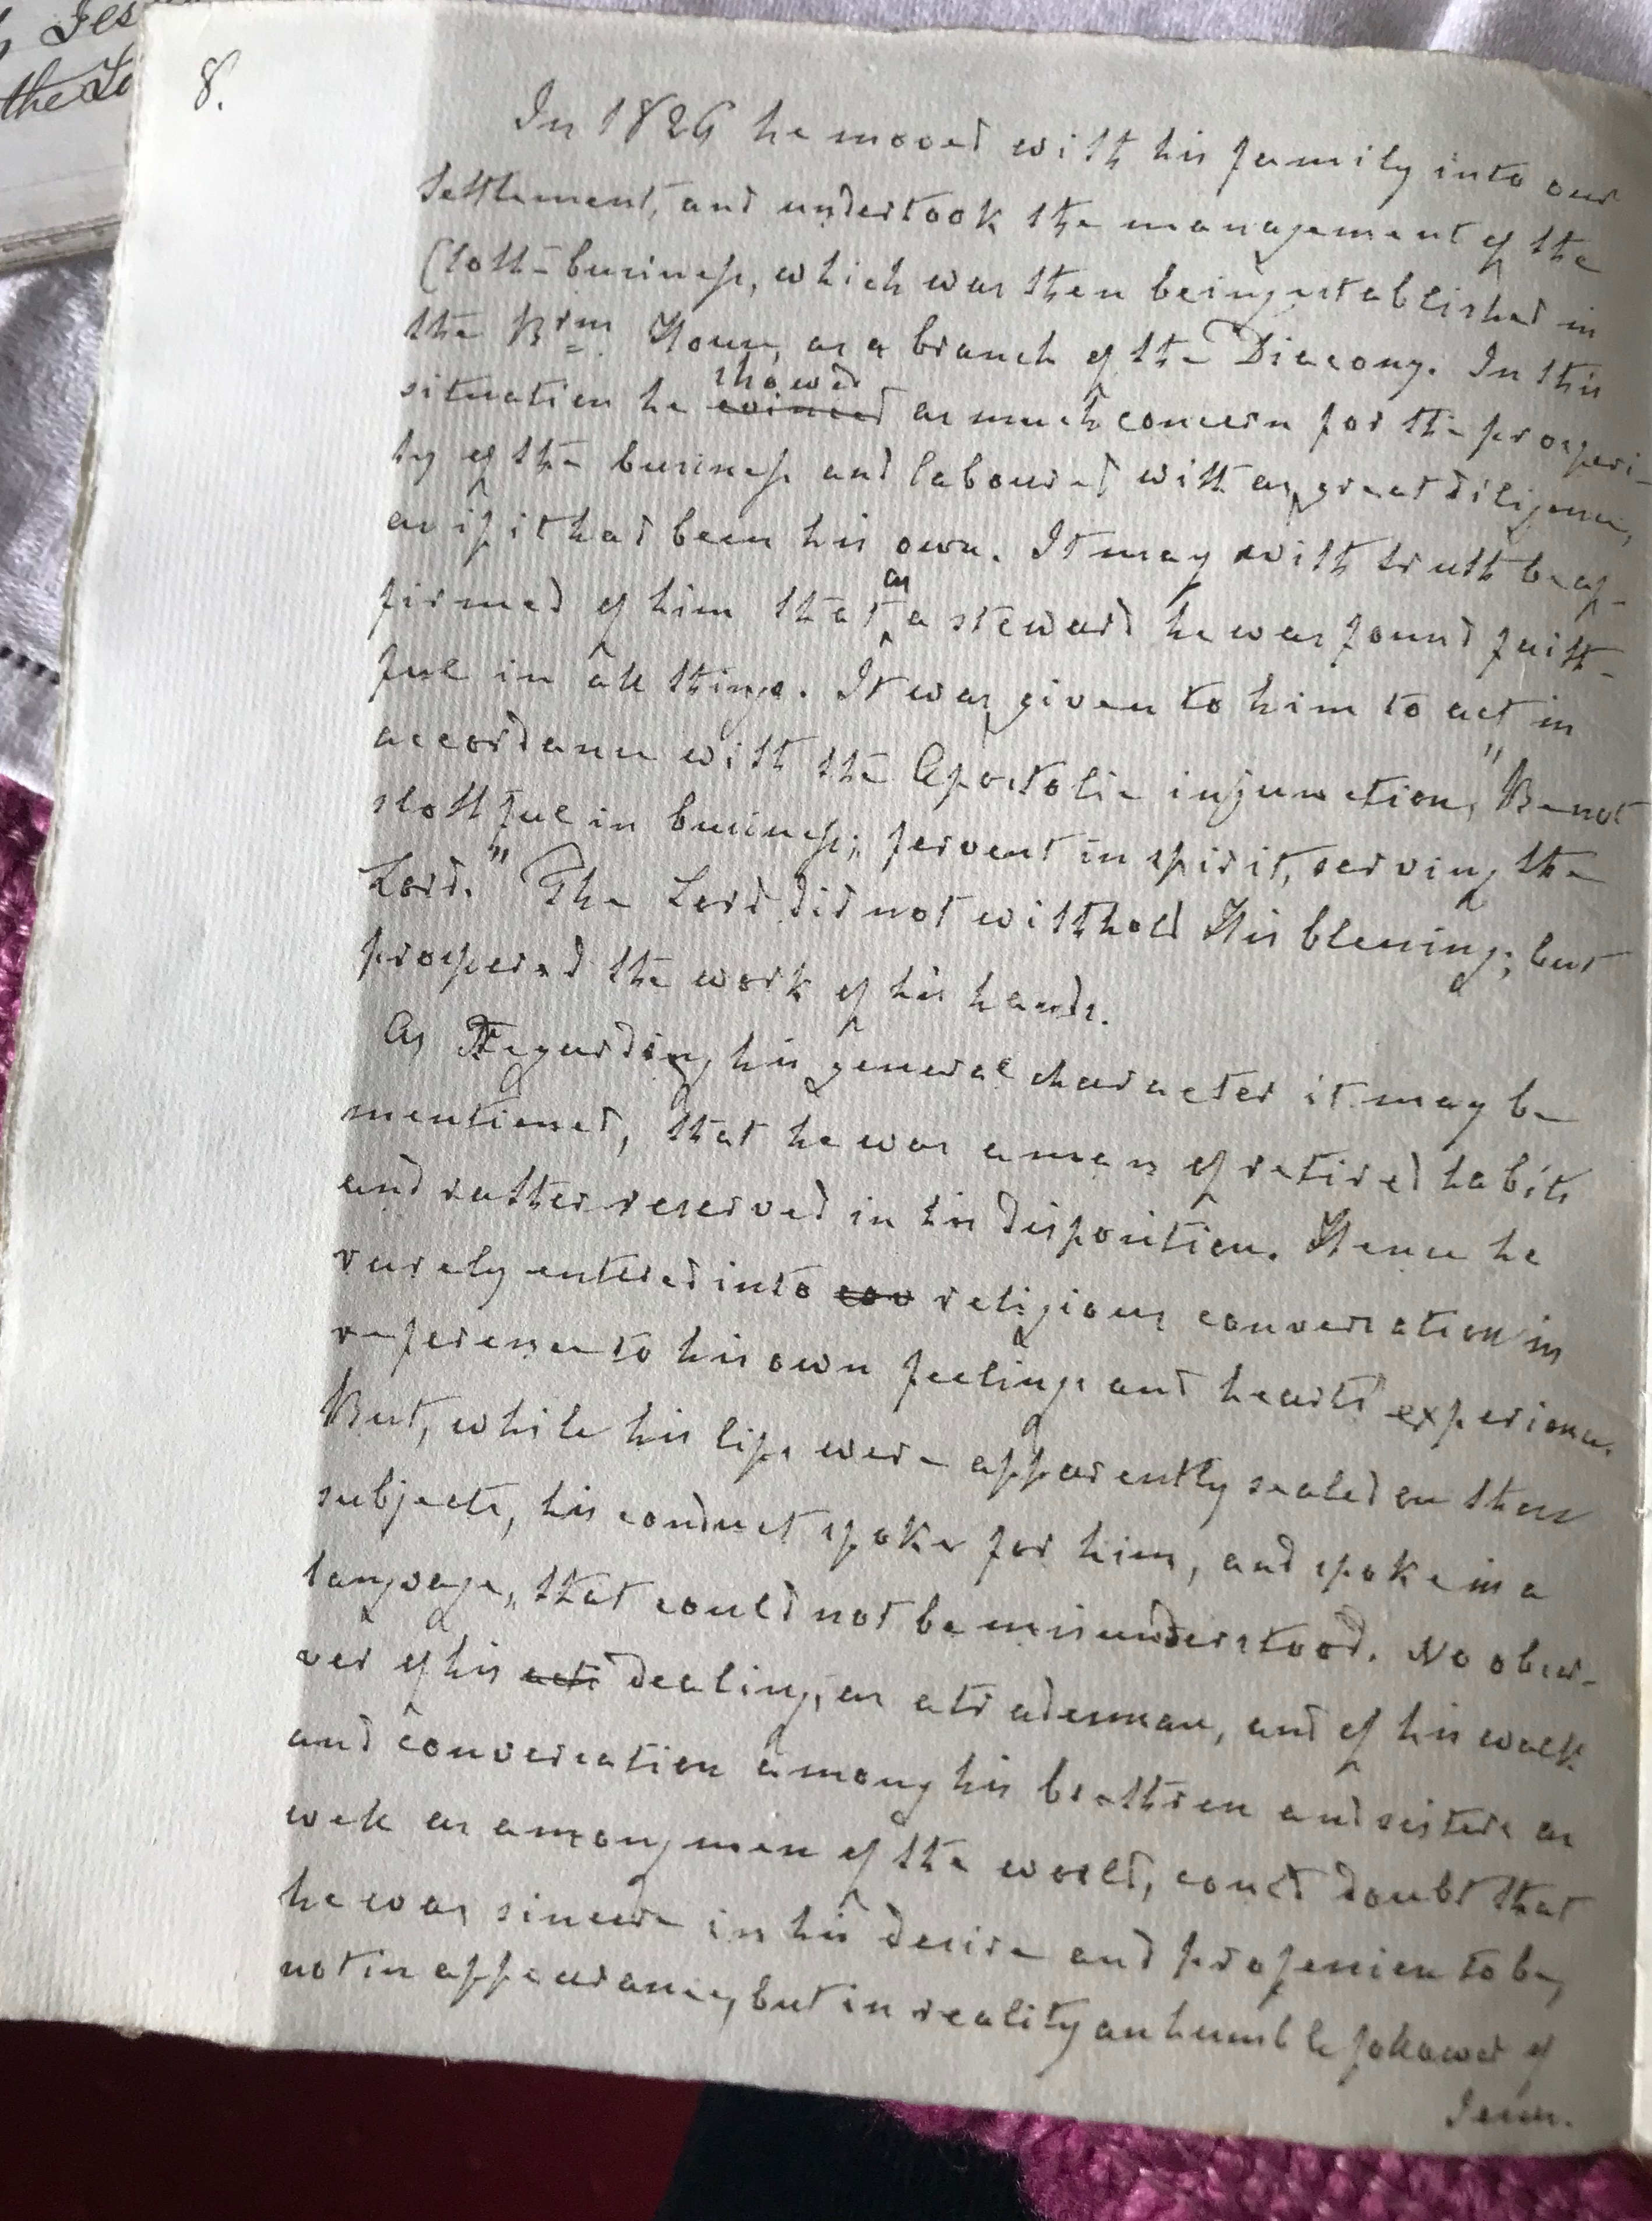 8.
In 1826 he moved with his family into our
settlement, and undertook the management of the
Cloth-business, which was then being established in
the Brn. House, as a branch of the Diacony. In this
showed
situation he evinced as much concern for the prosperi-
ty of the business and laboured with as great diligence,
as if it had been his own. It may with truth be af-
as
firmed of him that a steward he was found faith-
ful in all things. It was given to him to act in
accordance with the Apostolic injunction, "Be not
slothful in business; fervent in spirit, serving the
Lord." The Lord did not withhold His blessing; but
prospered the work of his hands.
As Regarding his general character it may be
mentioned, that he was a man of retired habits
and rather reserved in his disposition. Hence he
rarely entered into con religious conversation in
reference to his own feelings and hearts experience.
But, while his lips were apparently sealed on these
subjects, his conduct spoke for him, and spoke in a
language, that could not be misunderstood. No obser-
ver of his acts dealings, as a tradesman, and of his walk
and conversation among his brethren and sisters as
well as among men of the world, could doubt that
he was sincere in his desire and profession to be,
not in appearance, but in reality an humble follower of
Jesus.
Jes
the Lo